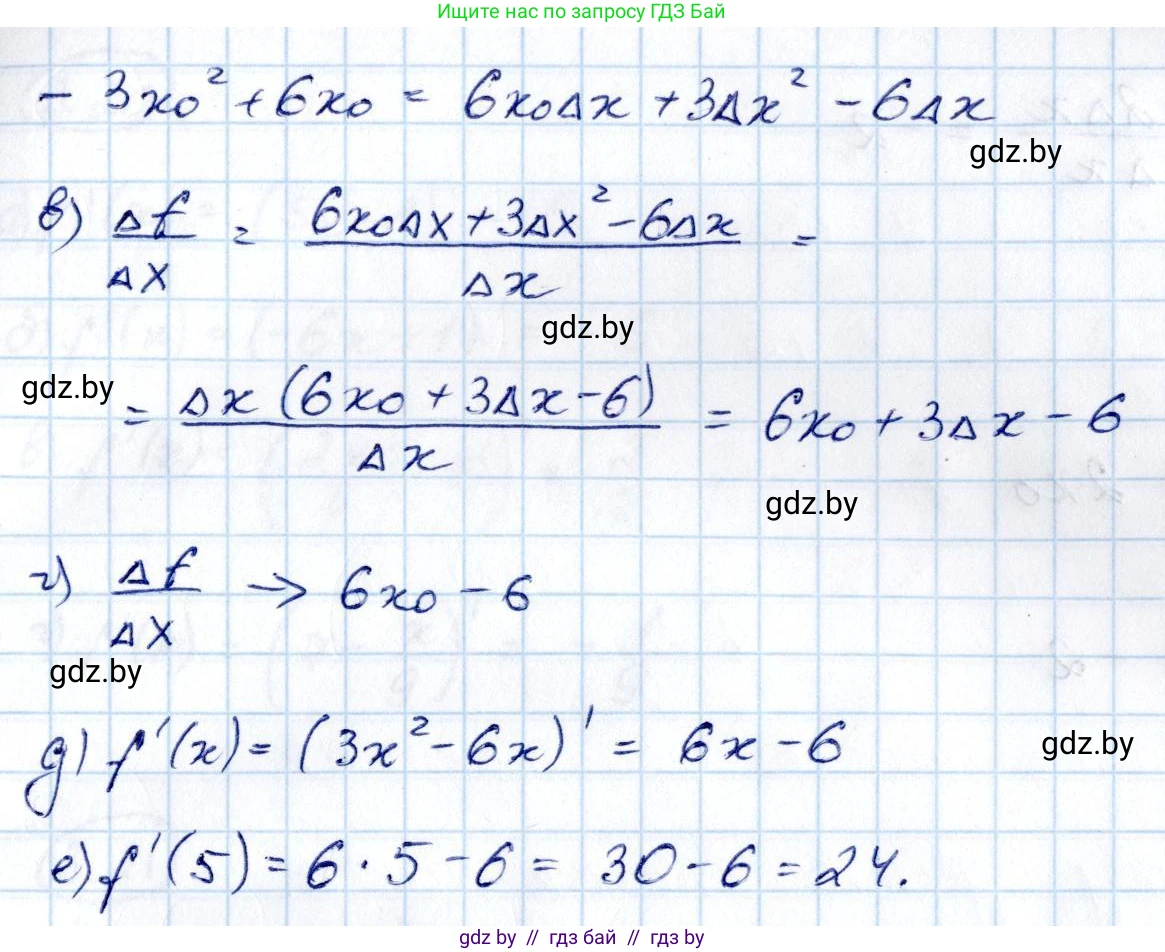 Ищите нас по запросу ГДЗ Бай
- 3x₀² + 6x₀ = 6x₀Δx + 3Δx² - 6Δx
gdz.by
в) Δf/Δx = (6x₀Δx + 3Δx² - 6Δx)/Δx =
gdz.by
gdz.by
= Δx (6x₀ + 3Δx - 6)/Δx = 6x₀ + 3Δx - 6
gdz.by
г) Δf/Δx → 6x₀ - 6
gdz.by
д) f'(x) = (3x² - 6x)' = 6x - 6
gdz.by
е) f'(5) = 6 · 5 - 6 = 30 - 6 = 24.
gdz.by // гдз бай // гдз by